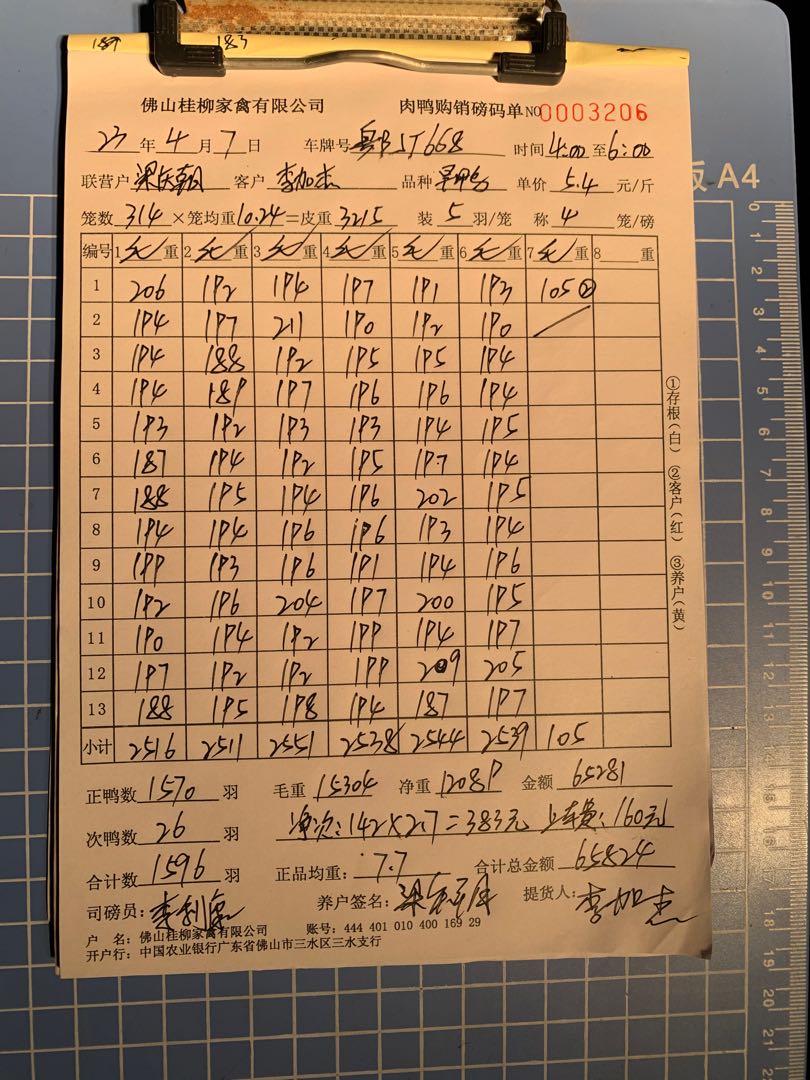 189 183
佛山桂柳家禽有限公司 肉鸭购销磅码单 NO 0003206
23 年 4 月 7 日 车牌号 粤B 5T668 时间 4:00 至 6:00
联营户 客户 李加杰 品种 单价 5.4 元/斤
笼数 314 ×笼均重 10.24 =皮重 3215 装 5 羽/笼 称 4 笼/磅
编号 1 毛 重 2 毛 重 3 毛 重 4 毛 重 5 毛 重 6 毛 重 7 毛 重 8 重
1 206 192 194 197 191 193 105 ②
2 194 197 211 190 192 190
3 194 188 192 195 195 194
4 194 189 197 196 196 194
5 193 192 193 193 194 195
6 187 194 192 195 197 194
7 188 195 194 196 202 195
8 194 194 196 196 193 194
9 199 193 196 191 194 196
10 192 196 204 197 200 195
11 190 194 192 199 194 197
12 197 192 192 199 209 205
13 188 195 198 194 187 197
小计 2516 2511 2551 2538 2544 2539 105
正鸭数 1570 羽 毛重 15304 净重 12089 金额 65281
次鸭数 26 羽 净次:142×2.7=383元 上车费:160元
合计数 1596 羽 正品均重: 7.7 合计总金额 65824
司磅员: 养户签名: 提货人: 李加杰
户 名: 佛山桂柳家禽有限公司 账号: 444 401 010 400 169 29
开户行: 中国农业银行广东省佛山市三水区三水支行
①存根(白) ②客户(红) ③养户(黄)
版 A4
0
1
2
3
4
5
6
7
8
9
10
11
12
13
14
15
16
17
18
19
20
21